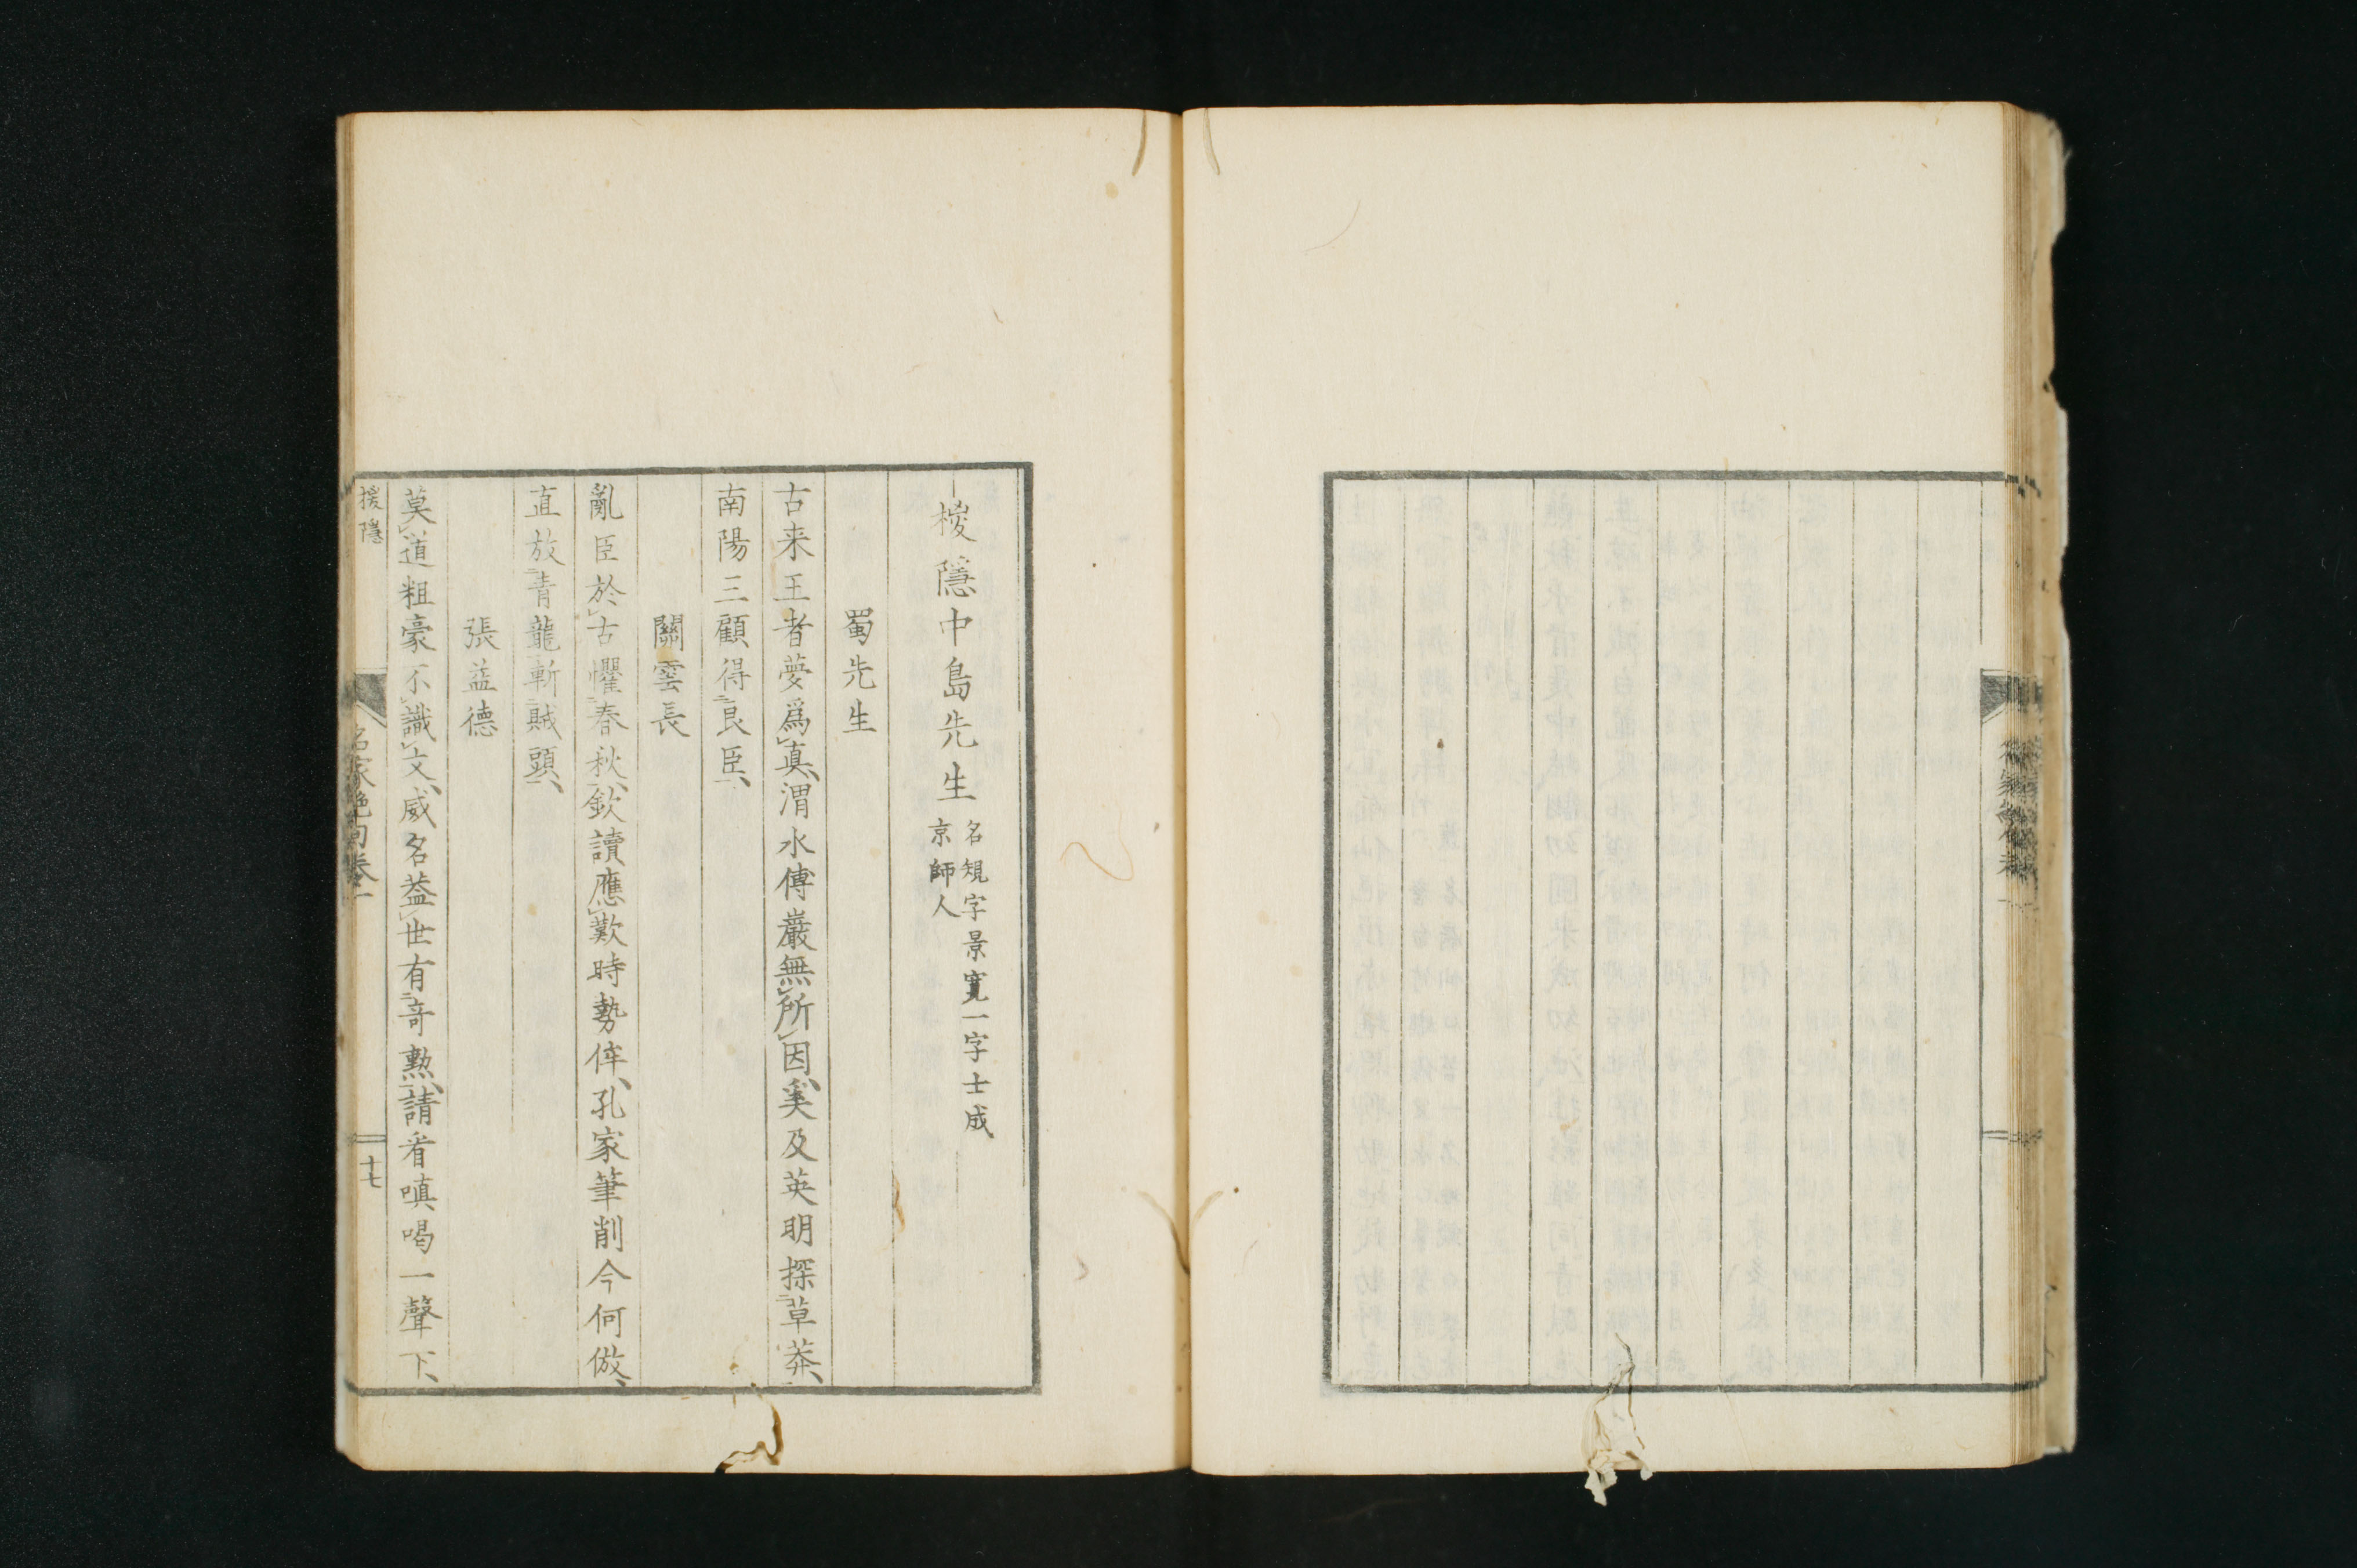 椶隱中島先生
名規字景寛一字士成
京師人
蜀先生
古来王者夢爲真渭水傅巖無所因奚及英明探草莽
南陽三顧得良臣
關雲長
亂臣於古懼春秋欽讀應歎時勢侔孔家筆削今何倣
直放青龍斬賊頭
張益德
莫道粗豪不識文威名蓋世有奇勲請看嗔喝一聲下
椶隱
名家絶句卷一
十七